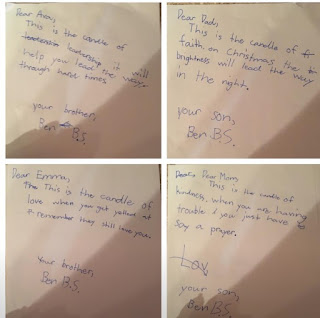 Dear Ava,
This is the candle of
leadership it will
help you lead the way
through hard times
your brother,
Ben B.S.
Dear Dad,
This is the candle of
faith on Christmas the
brightness will lead the way
in the right.
your son,
Ben B.S.
Dear Emma,
This is the candle of
love when you get yelled at
remember they still love you.
Your brother,
Ben B.S.
Dear Mom,
This is the candle of
kindness, when you are having
trouble you just have to
say a prayer.
your son,
Ben B.S.